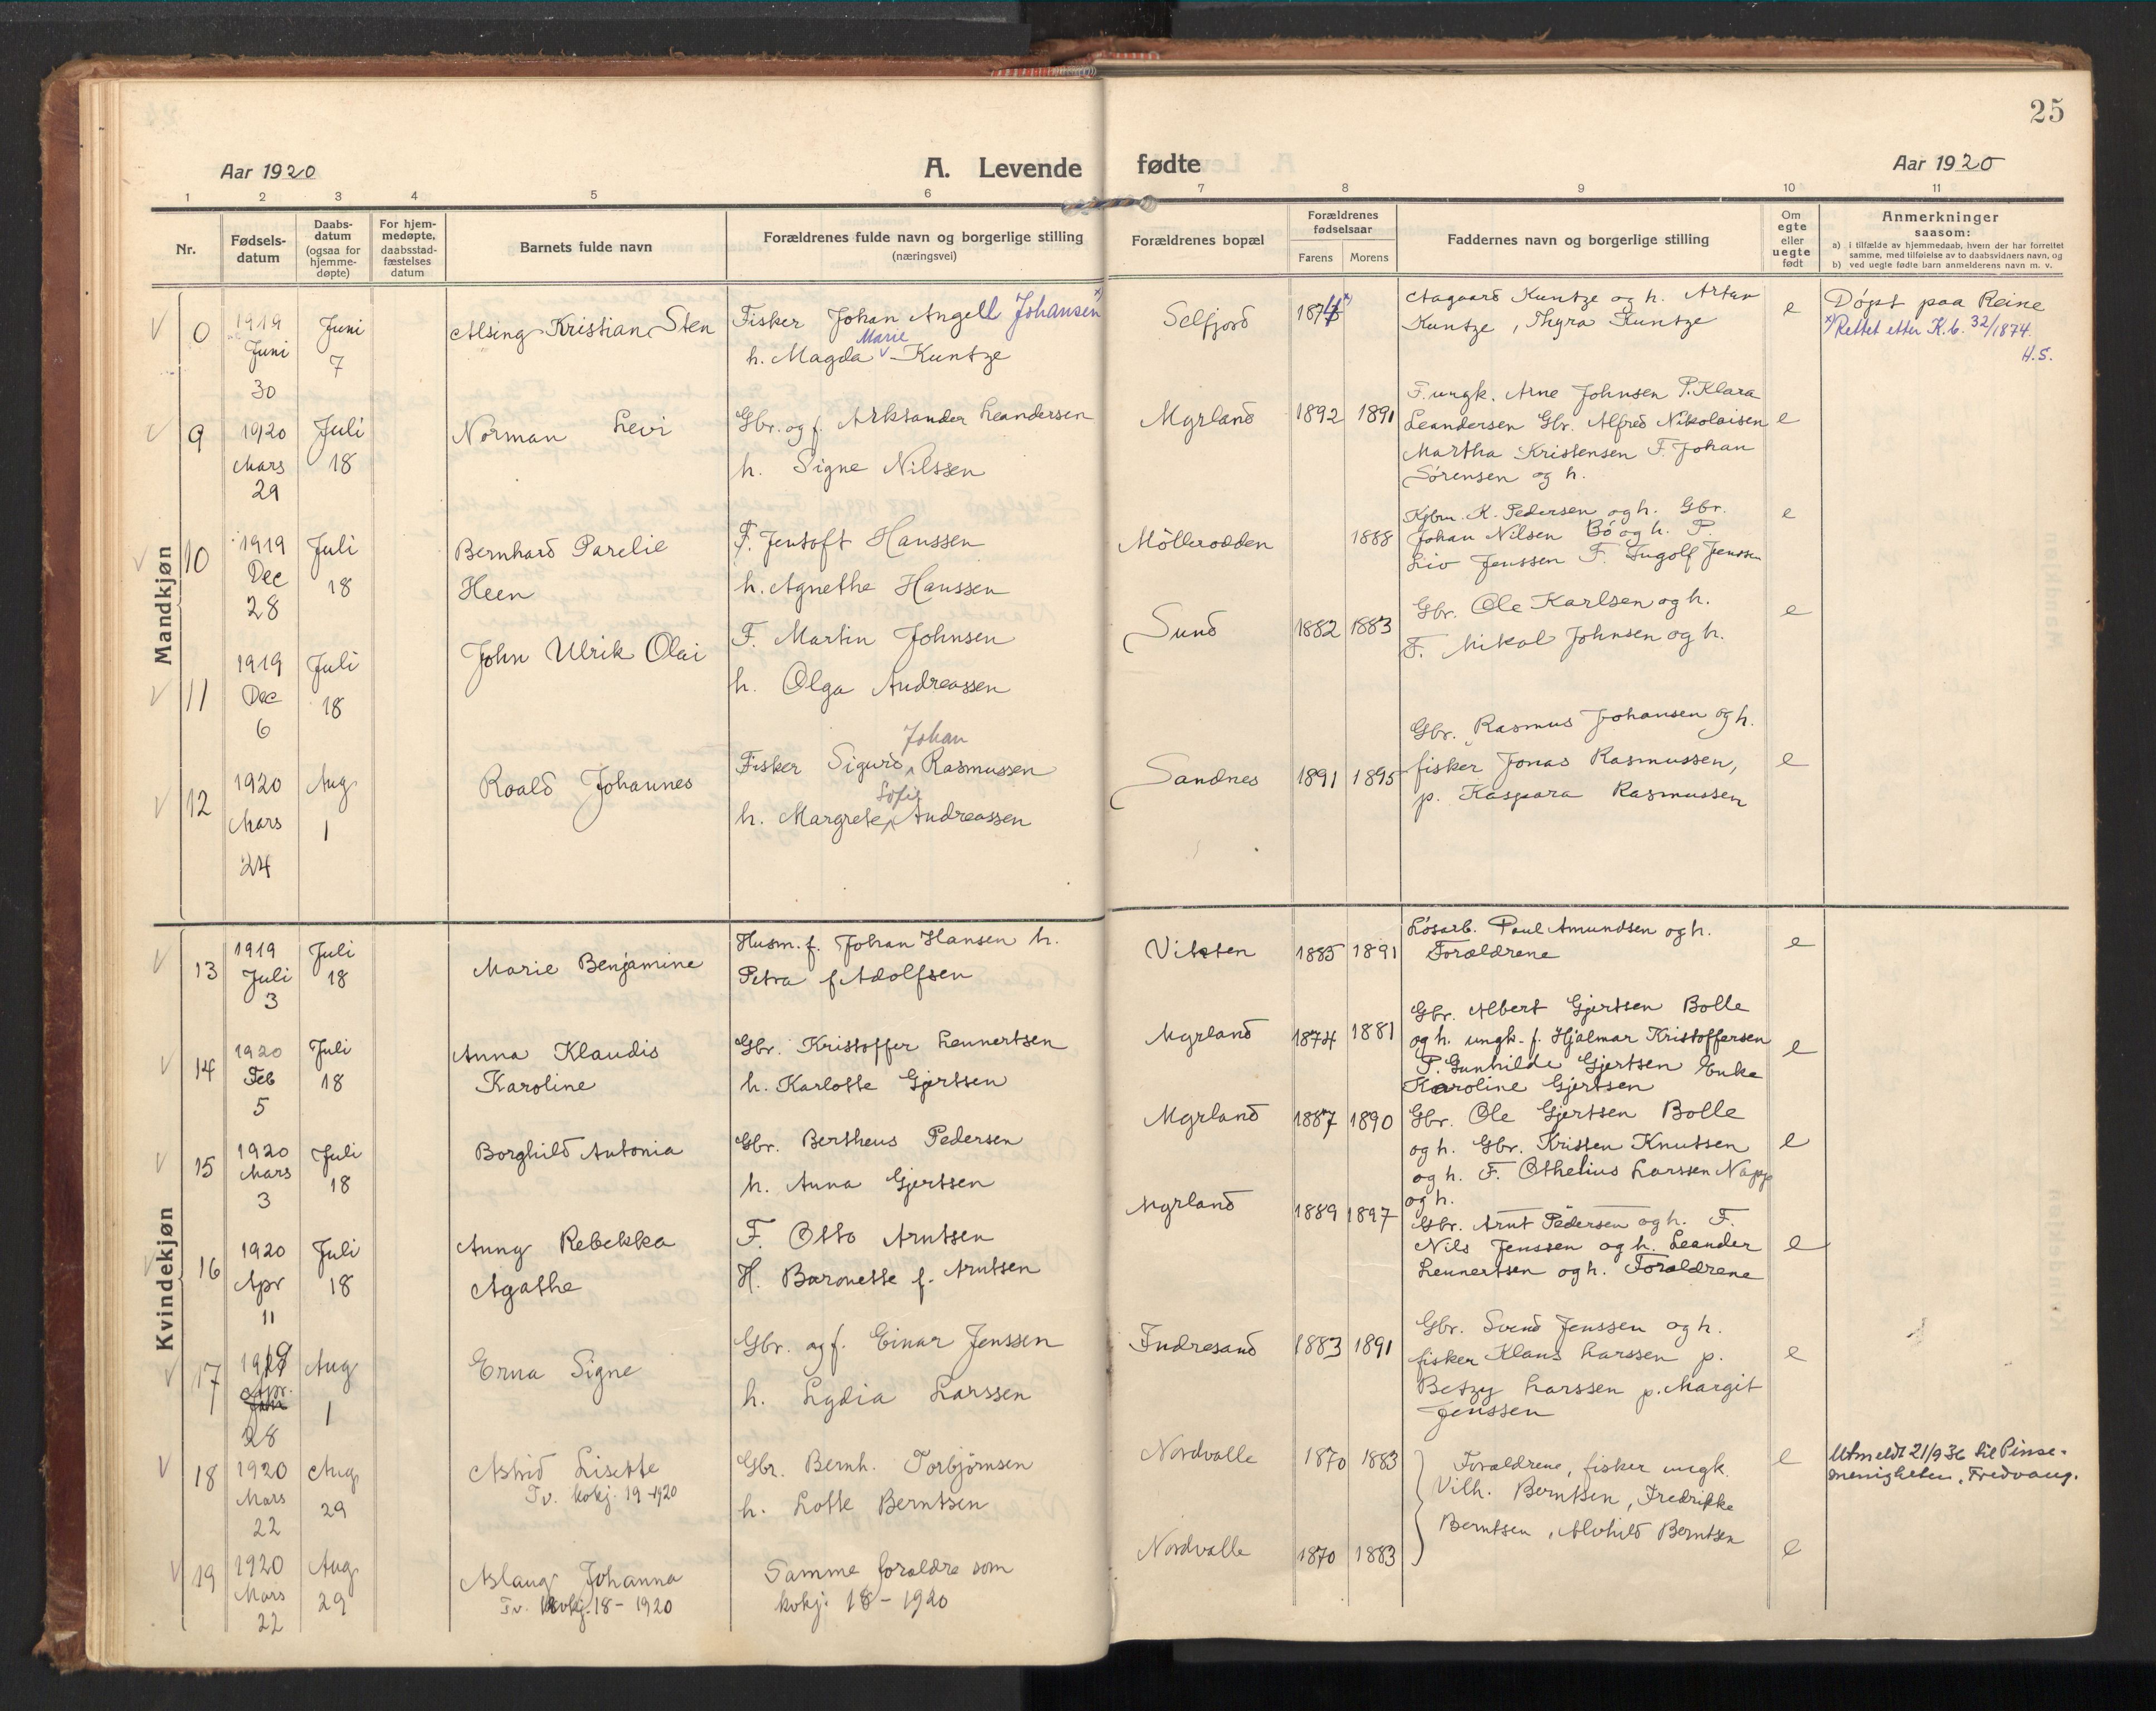 25
Aar 1920
A. Levende fødte
Aar 1920
1 2 3 4 5 6 7 8 9 10 11
Nr.
Fødsels-
datum
Daabs-
datum
(ogsaa for
hjemme-
døpte)
For hjem-
medøpte,
daabsstad-
fæstelses
datum
Barnets fulde navn
Forældrenes fulde navn og borgerlige stilling
(næringsvei)
Forældrenes bopæl
Forældrenes
fødselsaar
Farens Morens
Faddernes navn og borgerlige stilling
Om
egte
eller
uegte
født
Anmerkninger
saasom:
a) i tilfælde av hjemmedaab, hvem der har forrettet
samme, med tilføielse av to daabsvidners navn, og
b) ved uegte fødte barn anmelderens navn m. v.
Mandkjøn
0
1919
Juni
30
Juni
7
Alsing Kristian Sten
Fisker Johan Angell Johansen x)
Marie
h. Magda Kuntze
Selfjord
Aagaard Kuntze og h. Artur
Kuntze, Thyra Kuntze
e
Døpt paa Reine
x) Rettet etter K.b. 32/1874.
H.S.
9
1920
Mars
29
Juli
18
Norman Levi
Gbr. og f. Arksander Leandersen
h. Signe Nilssen
Myrland
1892 1891
F. ungk. Arne Johnsen P. Klara
Leandersen Gbr. Alfred Nikolaisen
Martha Kristensen F. Johan
Sørensen og h.
e
10
1919
Dec
28
Juli
18
Bernhard Parelie
Heen
F. Jentoft Hanssen
h. Agnethe Hanssen
Möllerodden
1888
Kjbm. K. Pedersen og h. Gbr.
Johan Nilsen Bö og h. P
Liv Jenssen F. Ingolf Jenssen
e
11
1919
Dec
6
Juli
18
John Ulrik Olai
F. Martin Johnsen
h. Olga Andreassen
Sund
1882 1883
Gbr. Ole Karlsen og h.
F. Mikal Johnsen og h.
e
12
1920
Mars
24
Aug
1
Roald Johannes
Johan
Fisker Sigurd Rasmussen
Sofie
h. Margrete Andreassen
Sandnes
1891 1895
Gbr. Rasmus Johansen og h.
fisker Jonas Rasmussen,
p. Kaspara Rasmussen
e
Kvindekjøn
13
1919
Juli
3
Juli
18
Marie Benjamine
Husm. f. Johan Hansen h.
Petra f. Adolfsen
Vikten
1885 1891
Løsarb. Paul Amundsen og h.
Forældrene
e
14
1920
Feb
5
Juli
18
Anna Klaudis
Karoline
Gbr. Kristoffer Lennertsen
h. Karlotte Gjertsen
Myrland
1874 1881
Gbr. Albert Gjertsen Bolle
og h. ungk. f. Hjalmar Kristoffersen
P. Gunhilde Gjertsen Enke
Karoline Gjertsen
e
15
1920
Mars
3
Juli
18
Borghild Antonia
Gbr. Bertheus Pedersen
h. Anna Gjertsen
Myrland
1887 1890
Gbr. Ole Gjertsen Bolle
og h. Gbr. Kristen Knutsen
og h. F. Othelius Larssen Napp
og h.
e
16
1920
Apr
11
Juli
18
Auny Rebekka
Agathe
F. Otto Arntsen
H. Baronette f. Arntsen
Myrland
1889 1897
Gbr. Arnt Pedersen og h. F.
Nils Jenssen og h. Leander
Lennertsen og h. Forældrene
e
17
1919
Apr.
28
Aug
1
Erna Signe
Gbr. og f. Einar Jenssen
h. Lydia Larssen
Indresand
1883 1891
Gbr. Svend Jenssen og h.
fisker Klaus Larssen p.
Betzy Larssen p. Margit
Jenssen
e
18
1920
Mars
22
Aug
29
Astrid Lisette
Tv. kvkj. 19-1920
Gbr. Bernh. Torbjørnsen
h. Lotte Berntsen
Nordvalle
1870 1883
Forældrene, fisker ungk.
Vilh. Berntsen, Fredrikke
Berntsen, Alvhild Berntsen
e
Utmeldt 21/9 36 til Pinse-
menigheten, Fredvang.
19
1920
Mars
22
Aug
29
Aslaug Johanna
Tv. kvkj. 18-1920
Samme forældre som
kvkj. 18-1920
Nordvalle
1870 1883
e